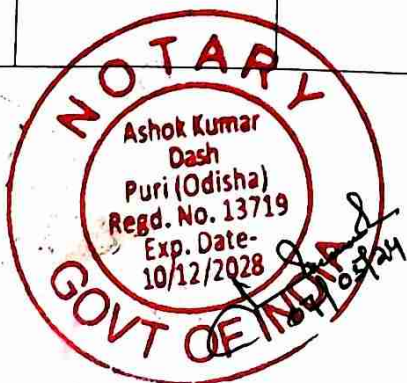 NOTARY
Ashok Kumar
Dash
Puri (Odisha)
Regd. No. 13719
Exp. Date-
10/12/2028
GOVT OF INDIA